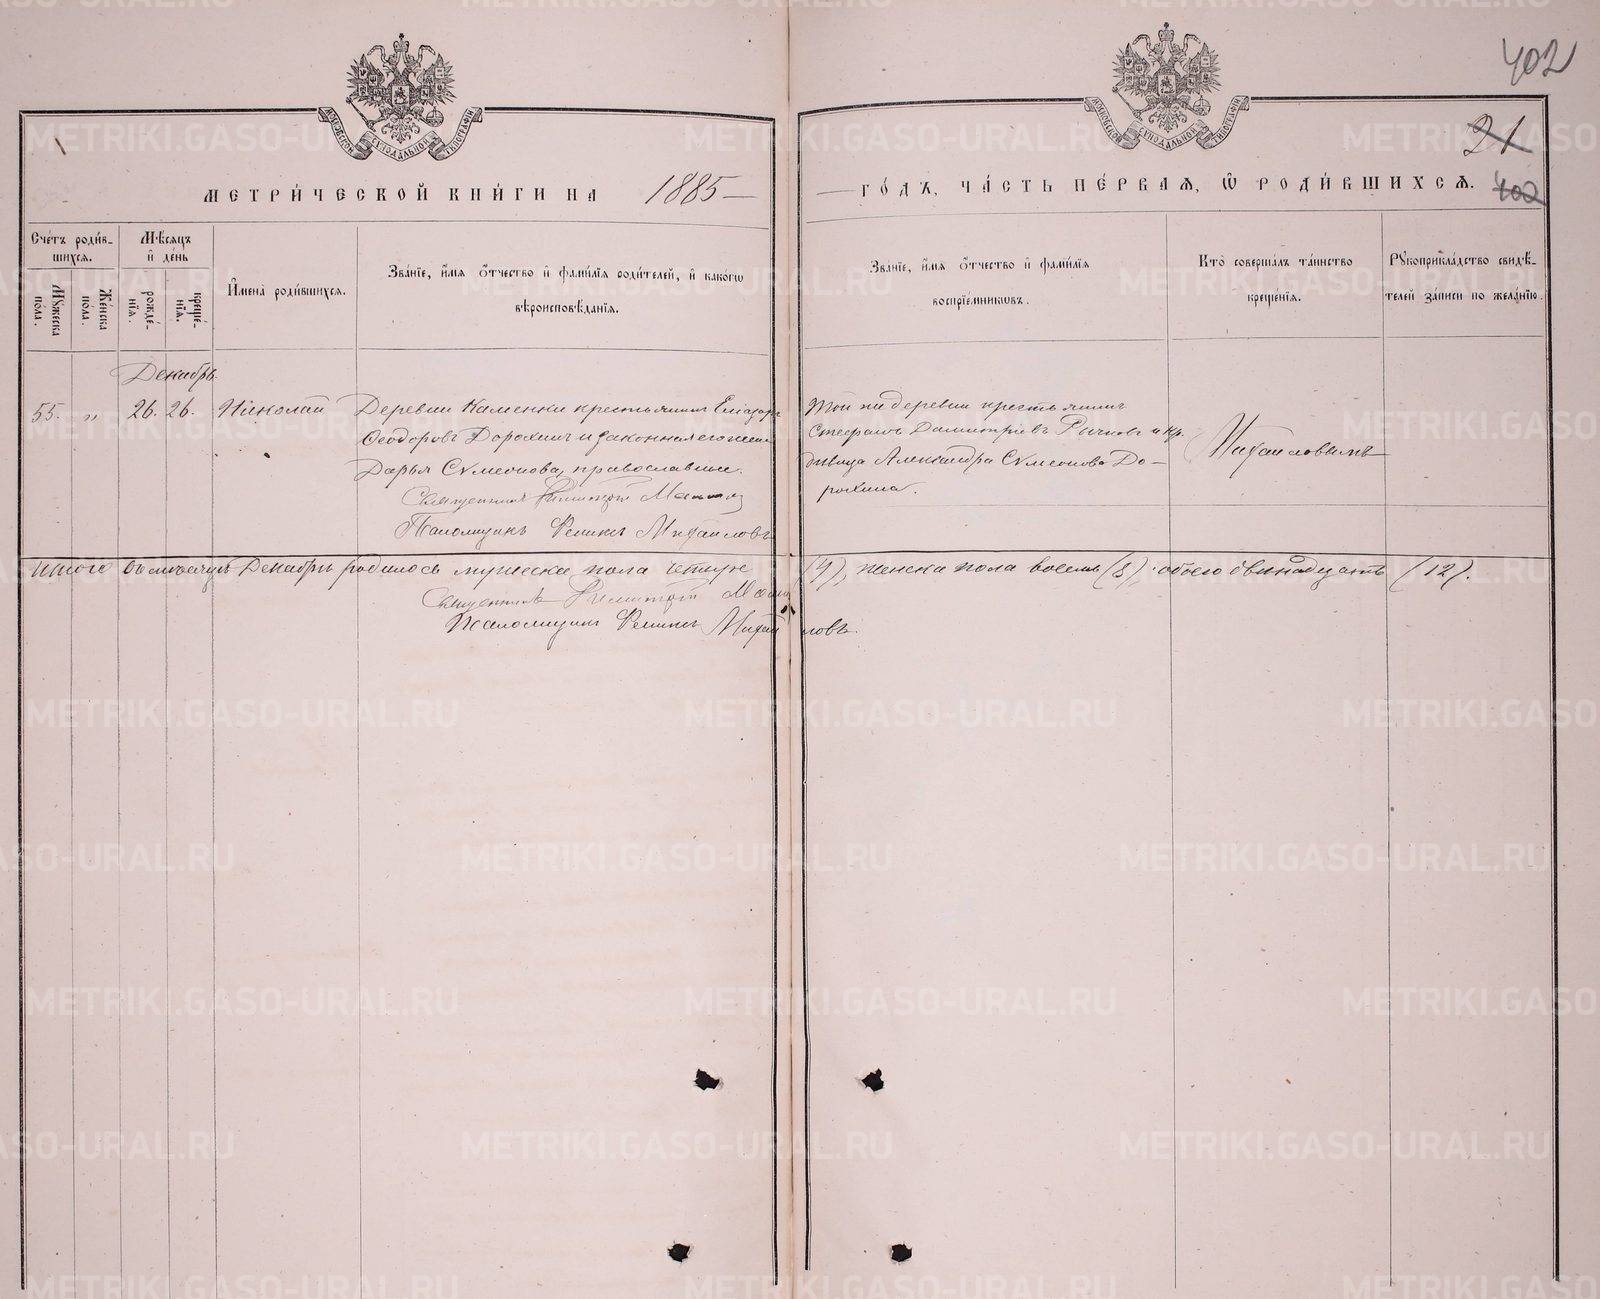 402
21
402
МОСКОВСКОЙ СѴНОДАЛЬНОЙ ТИПОГРАФІИ
МОСКОВСКОЙ СѴНОДАЛЬНОЙ ТИПОГРАФІИ
МЕТРИ́ЧЕСКОЙ КНИ́ГИ НА 1885
ГО́ДЪ, ЧА́СТЬ ПЕ́РВАѦ, Ѽ РОДИ́ВШИХСѦ.
Счéтъ роди́в-
шихсѧ.
Мꙋ́жеска по́ла.
Же́нска по́ла.
Мѣ́сѧцъ
и҆ де́нь
рожде́-
нїѧ.
креще́-
нїѧ.
И҆мена̀ роди́вшихсѧ.
Зва́нїе, и҆́мѧ ѻ҆́тчество и҆ фамѝлїѧ роди́телей, и҆ како́гѡ
вѣроисповѣ́данїѧ.
Зва́нїе, и҆́мѧ ѻ҆́тчество и҆ фамѝлїѧ
воспрїе́мниковъ.
Кто̀ соверша́лъ та́инство
креще́нїѧ.
Рꙋкоприкла́дство свидѣ́-
телей за́писи по жела́нїю.
Декабрь.
55. „ 26. 26. Николай
Деревни Каменки крестьянин Елиазаръ
Ѳеодоровъ Дорохинъ и законная его жена
Дарья Сѵмеонова, православные.
Священникъ Димитрій
Псаломщикъ Феликсъ Михайловъ
Той же деревни крестьянинъ
Стефанъ Димитріевъ Рычковъ и кр.
девица Александра Сѵмеонова До-
рохина.
Михайловымъ
Итого въ мѣсяцѣ Декабрѣ родилось мужеска пола четыре (4), женска пола восемь (8), обоего двенадцать (12).
Священникъ Димитрій
Псаломщикъ Феликсъ Михайловъ.
METRIKI.GASO-URAL.RU